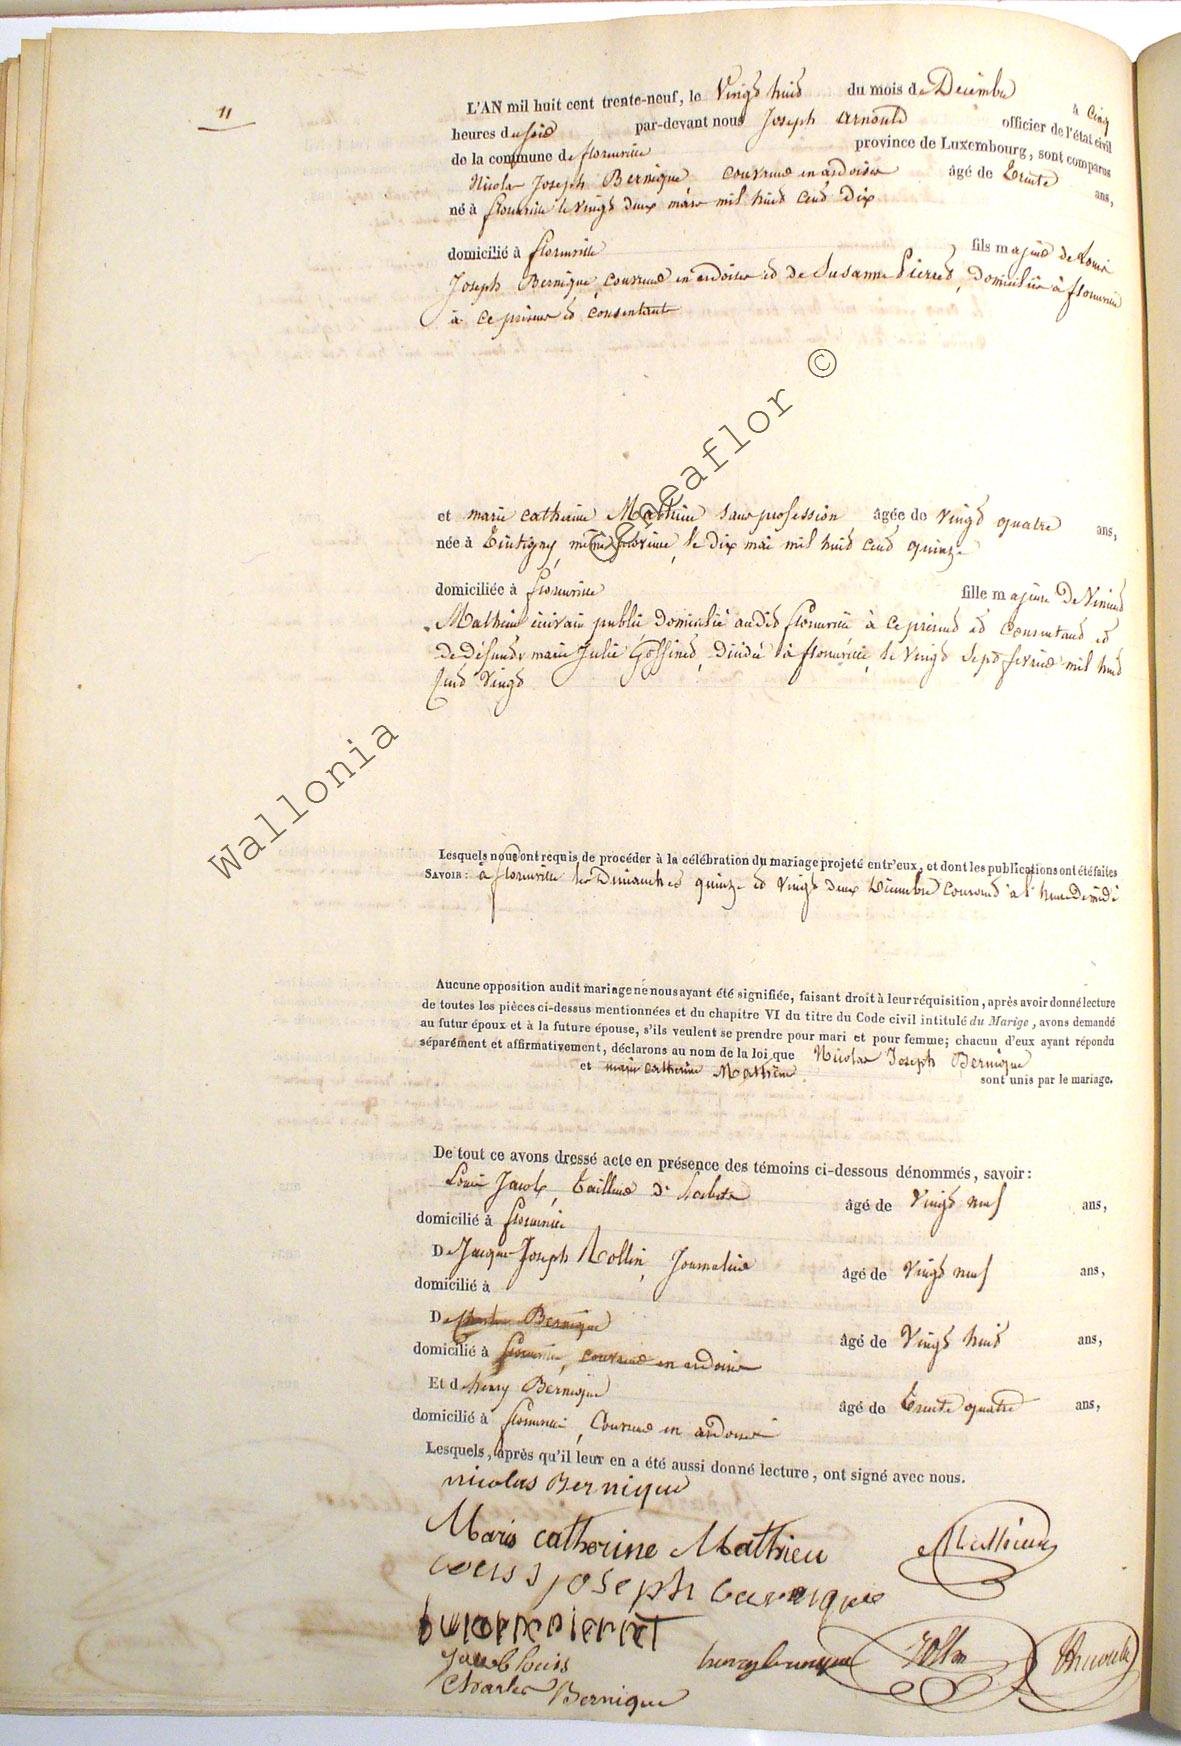 11
L'AN mil huit cent trente-neuf, le vingt huit du mois de Décembre à cinq
heures du soir par-devant nous Joseph Arnould officier de l'état civil
de la commune de florenville province de Luxembourg, sont comparus
Nicolas Joseph Bernique couvreur en ardoises âgé de trente ans,
né à florenville le vingt deux mars mil huit cent dix
domicilié à florenville fils majeur de Louis
Joseph Bernique, couvreur en ardoises et de Susanne Pierret, domiciliés à florenville
à ce présens et consentants
et marie catherine Mathieu sans profession âgée de vingt quatre ans,
née à Tintigny, même province, le dix mai mil huit cent quinze
domiciliée à florenville fille majeure de
Mathieu écrivain public domicilié audit florenville à ce présent et consentant et
de défunte marie Julie Gossinet, décédée à florenville, le vingt sept février mil huit
cent vingt
Lesquels nous ont requis de procéder à la célébration du mariage projeté entr'eux, et dont les publications ont été faites
SAVOIR : à florenville les Dimanches quinze et vingt deux Décembre courant à l'heure de midi
Aucune opposition audit mariage ne nous ayant été signifiée, faisant droit à leur réquisition, après avoir donné lecture
de toutes les pièces ci-dessus mentionnées et du chapitre VI du titre du Code civil intitulé du Marige, avons demandé
au futur époux et à la future épouse, s'ils veulent se prendre pour mari et pour femme; chacun d'eux ayant répondu
séparément et affirmativement, déclarons au nom de la loi que Nicolas Joseph Bernique
et marie catherine Mathieu sont unis par le mariage.
De tout ce avons dressé acte en présence des témoins ci-dessous dénommés, savoir:
Louis Jacob, tailleur de âgé de vingt neuf ans,
domicilié à florenville
De Jacque Joseph Rollin, Journalier âgé de vingt neuf ans,
domicilié à
De Charles Bernique âgé de vingt huit ans,
domicilié à florenville, couvreur en ardoises
Et de henry Bernique âgé de trente quatre ans,
domicilié à florenville, couvreur en ardoises
Lesquels, après qu'il leur en a été aussi donné lecture, ont signé avec nous.
nicolas Bernique
Marie catherine Mathieu Mathieu
Louis joseph bernique
henry bernique Rollin
jacob louis
Charles Bernique
Wallonia Geneaflor ©